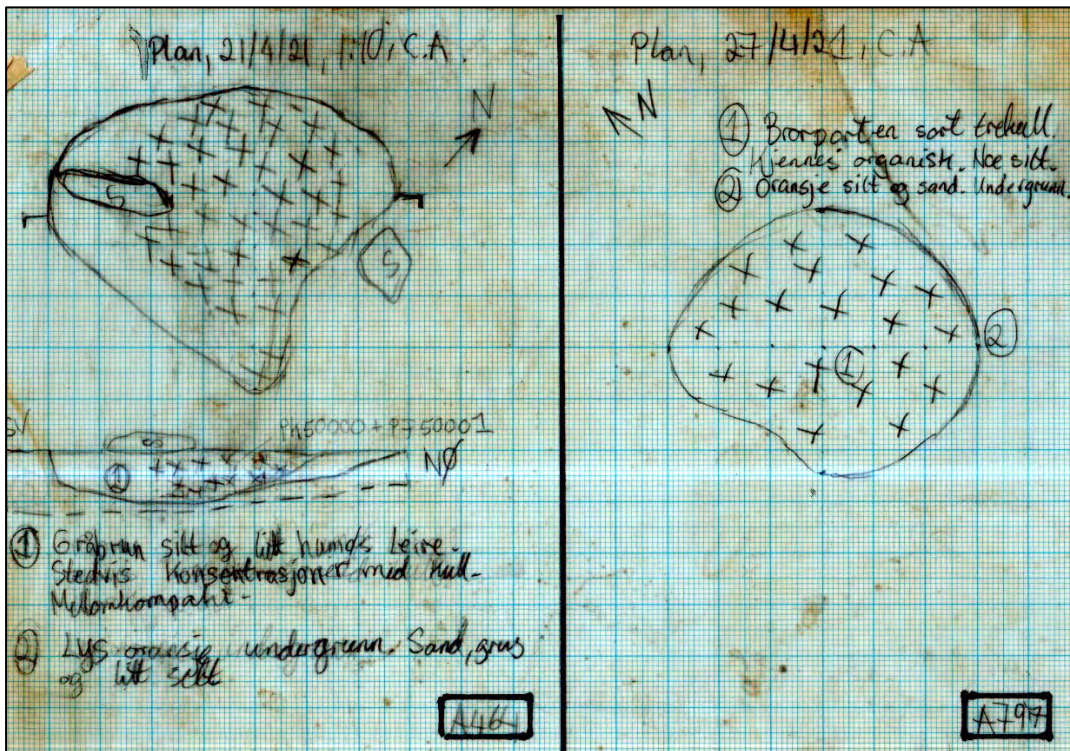 Plan, 21/4/21, 1:10, C.A.
N
S
S
SV
S
PK50000 + PF50001
NØ
1
① Gråbrun silt og litt humøs leire.
Stedvis konsentrasjoner med kull.
Mellomkompakt.
② Lys oransje undergrunn. Sand, grus
og litt silt
A464
Plan, 27/4/21, C.A
N
① Brorparten sort trekull.
Kjennes organisk. Noe silt.
② Oransje silt og sand. Undergrunn.
②
①
A797